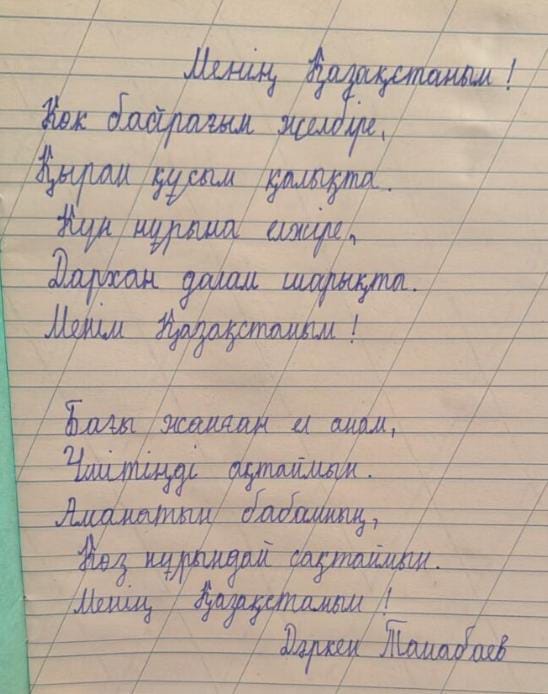 Менің Қазақстаным!
Көк байрағым желбіре,
Қыран құсым қалықта.
Күн нұрына елжіре,
Дархан далам шарықта.
Менім Қазақстаным!
Бағы жанған ел анам,
Үмітіңді ақтаймын.
Аманатын бабамның,
Көз нұрындай сақтаймын.
Менің Қазақстаным!
Дәркен Танабаев